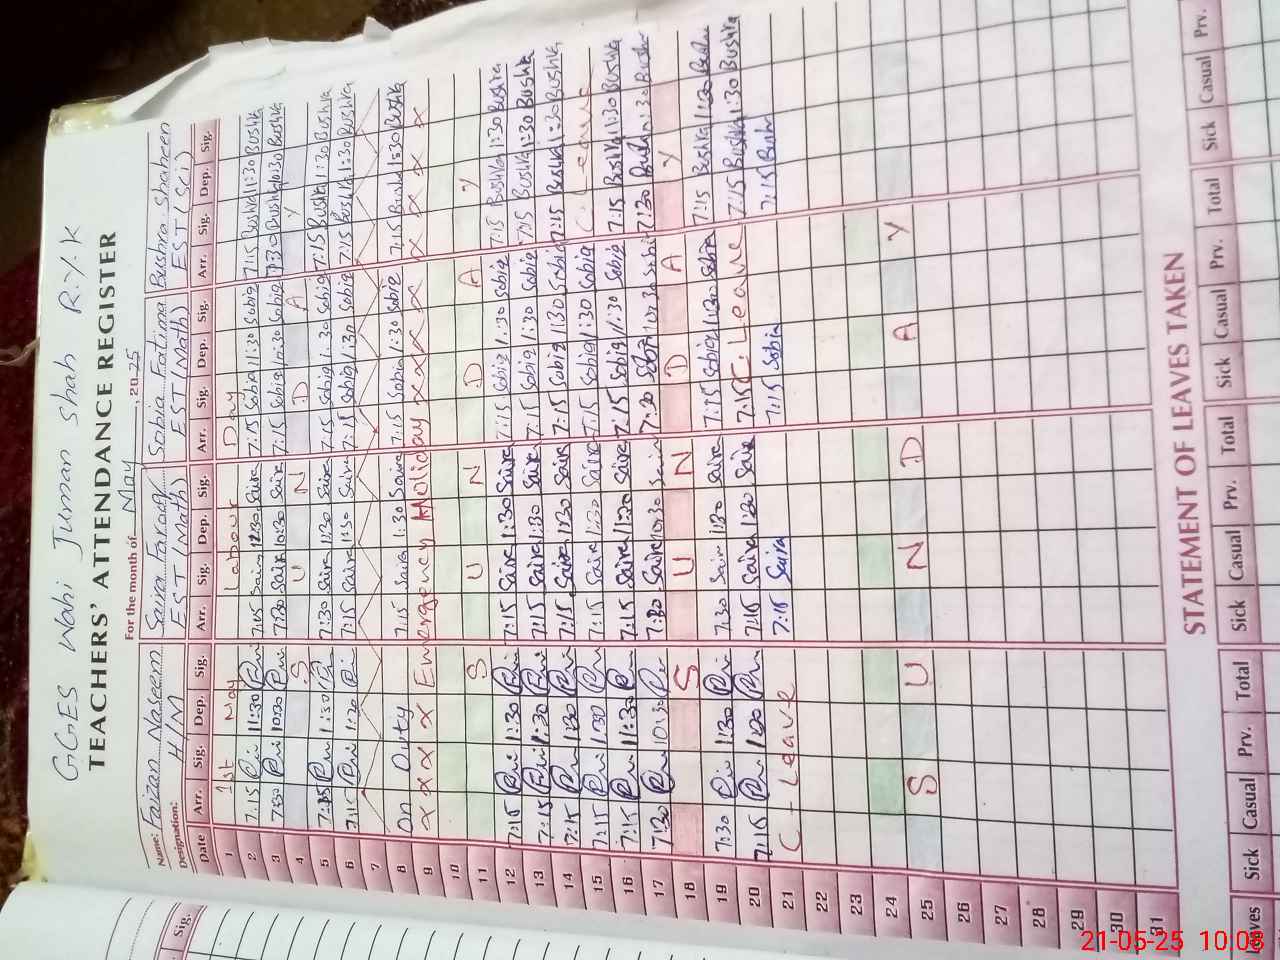 GGES Wahi Juman Shah R.Y.K
TEACHERS' ATTENDANCE REGISTER
For the month of May, 2025
Name: Faizan Naseem Saira Farooq Sobia Fatima Bushra Shaheen
Designation: H/M EST (Math) EST (Math) EST (Sci)
Date Arr. Sig. Dep. Sig. Arr. Sig. Dep. Sig. Arr. Sig. Dep. Sig. Arr. Sig. Dep. Sig.
1 1st May Labour Day
2 7:15 11:30 7:15 Saira Saira 7:15 Sobia 11:30 Sobia 7:15 Bushra 11:30 Bushra
3 7:30 10:30 7:30 Saira 10:30 Saira 7:15 Sobia 10:30 Sobia 7:30 Bushra 10:30 Bushra
4 S U N D A Y
5 7:15 1:30 7:30 Saira 1:30 Saira 7:15 Sobia 1:30 Sobia 7:15 Bushra 1:30 Bushra
6 7:15 1:30 7:15 Saira 1:30 Saira 7:15 Sobia 1:30 Sobia 7:15 Bushra 1:30 Bushra
7
8 On Duty 7:15 Saira 1:30 Saira 7:15 Sobia 1:30 Sobia 7:15 Bushra 1:30 Bushra
9 x x x x Emergency Holiday x x x x x x x x
10
11 S U N D A Y
12 7:15 1:30 7:15 Saira 1:30 Saira 7:15 Sobia 1:30 Sobia 7:15 Bushra 1:30 Bushra
13 7:15 1:30 7:15 Saira 1:30 Saira 7:15 Sobia 1:30 Sobia 7:15 Bushra 1:30 Bushra
14 7:15 1:30 7:15 Saira 1:30 Saira 7:15 Sobia 1:30 Sobia 7:15 Bushra 1:30 Bushra
15 7:15 1:30 7:15 Saira 1:30 Saira 7:15 Sobia 1:30 Sobia C Leave
16 7:15 11:30 7:15 Saira 11:30 Saira 7:15 Sobia 11:30 Sobia 7:15 Bushra 11:30 Bushra
17 7:30 10:30 7:30 Saira 10:30 Saira 7:30 Sobia 10:30 Sobia 7:30 Bushra Bushra
18 S U N D A Y
19 7:30 1:30 7:30 Saira 1:30 Saira 7:15 Sobia 1:30 Sobia 7:15 Bushra 1:30 Bushra
20 7:15 1:30 7:15 Saira 1:30 Saira 7:15 C. Leave 7:15 Bushra 1:30 Bushra
21 C - Leave 7:15 Saira 7:15 Sobia 7:15 Bushra
22
23
24
25 S U N D A Y
26
27
28
29
30
31
STATEMENT OF LEAVES TAKEN
Leaves Sick Casual Prv. Total Sick Casual Prv. Total Sick Casual Prv. Total Sick Casual Prv.
Sig.
Sig.
21-05-25 10:08